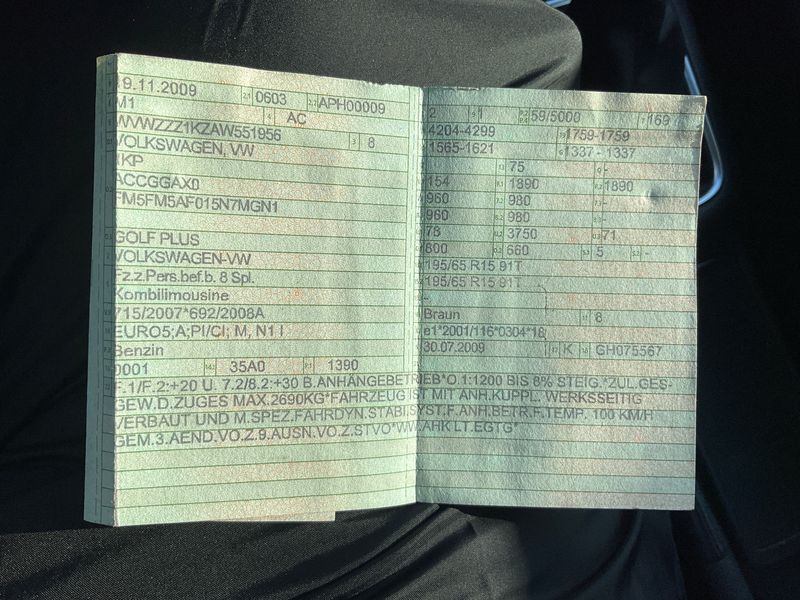 19.11.2009 0603 APH00009
M1 AC
WVWZZZ1KZAW551956 3 8
VOLKSWAGEN, VW
1KP
ACCGGAX0
FM5FM5AF015N7MGN1
GOLF PLUS
VOLKSWAGEN-VW
Fz.z.Pers.bef.b. 8 Spl.
Kombilimousine
715/2007*692/2008A
EURO5;A;PI/CI; M, N1 I
Benzin
0001 35A0 1390
2 1 59/5000 169
4204-4299 1759-1759
1565-1621 1337 - 1337
75 -
154 1890 1890
960 980 -
960 980 -
78 3750 71
800 660 5 -
195/65 R15 91T
195/65 R15 91T
-
Braun 8
e1*2001/116*0304*18
30.07.2009 K GH075567
F.1/F.2:+20 U. 7.2/8.2:+30 B.ANHÄNGEBETRIEB*O.1:1200 BIS 8% STEIG.*ZUL.GES-
GEW.D.ZUGES MAX.2690KG*FAHRZEUG IST MIT ANH.KUPPL. WERKSSEITIG
VERBAUT UND M.SPEZ.FAHRDYN.STABI.SYST.F.ANH.BETR.F.TEMP. 100 KM/H
GEM.3.AEND.VO.Z.9.AUSN.VO.Z.STVO*WW.AHK LT.EGTG*